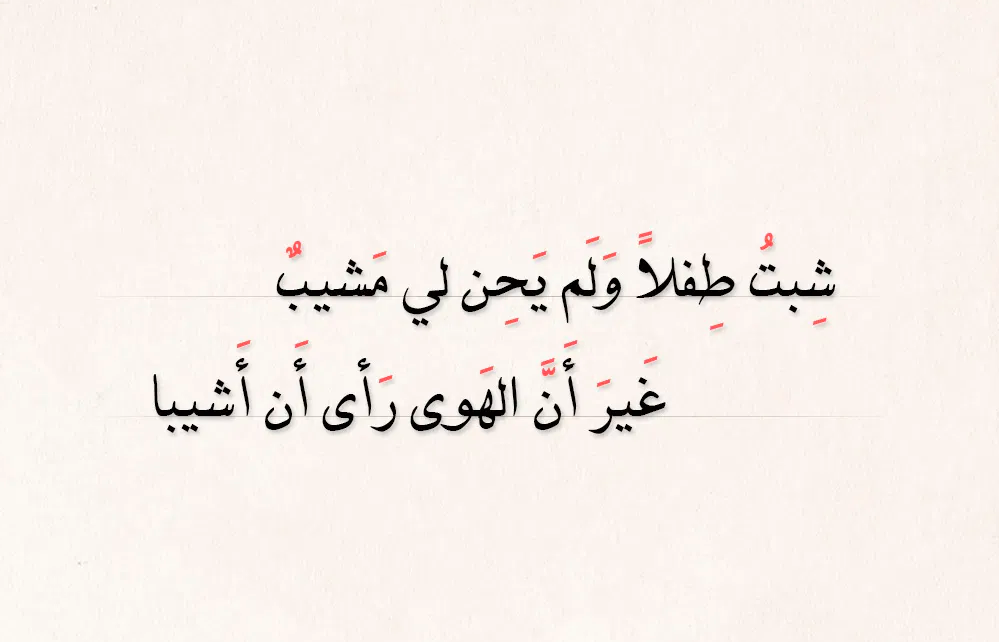 شِبتُ طِفلاً وَلَم يَحِن لي مَشيبٌ
غَيرَ أَنَّ الهَوى رَأى أَن أَشيبا